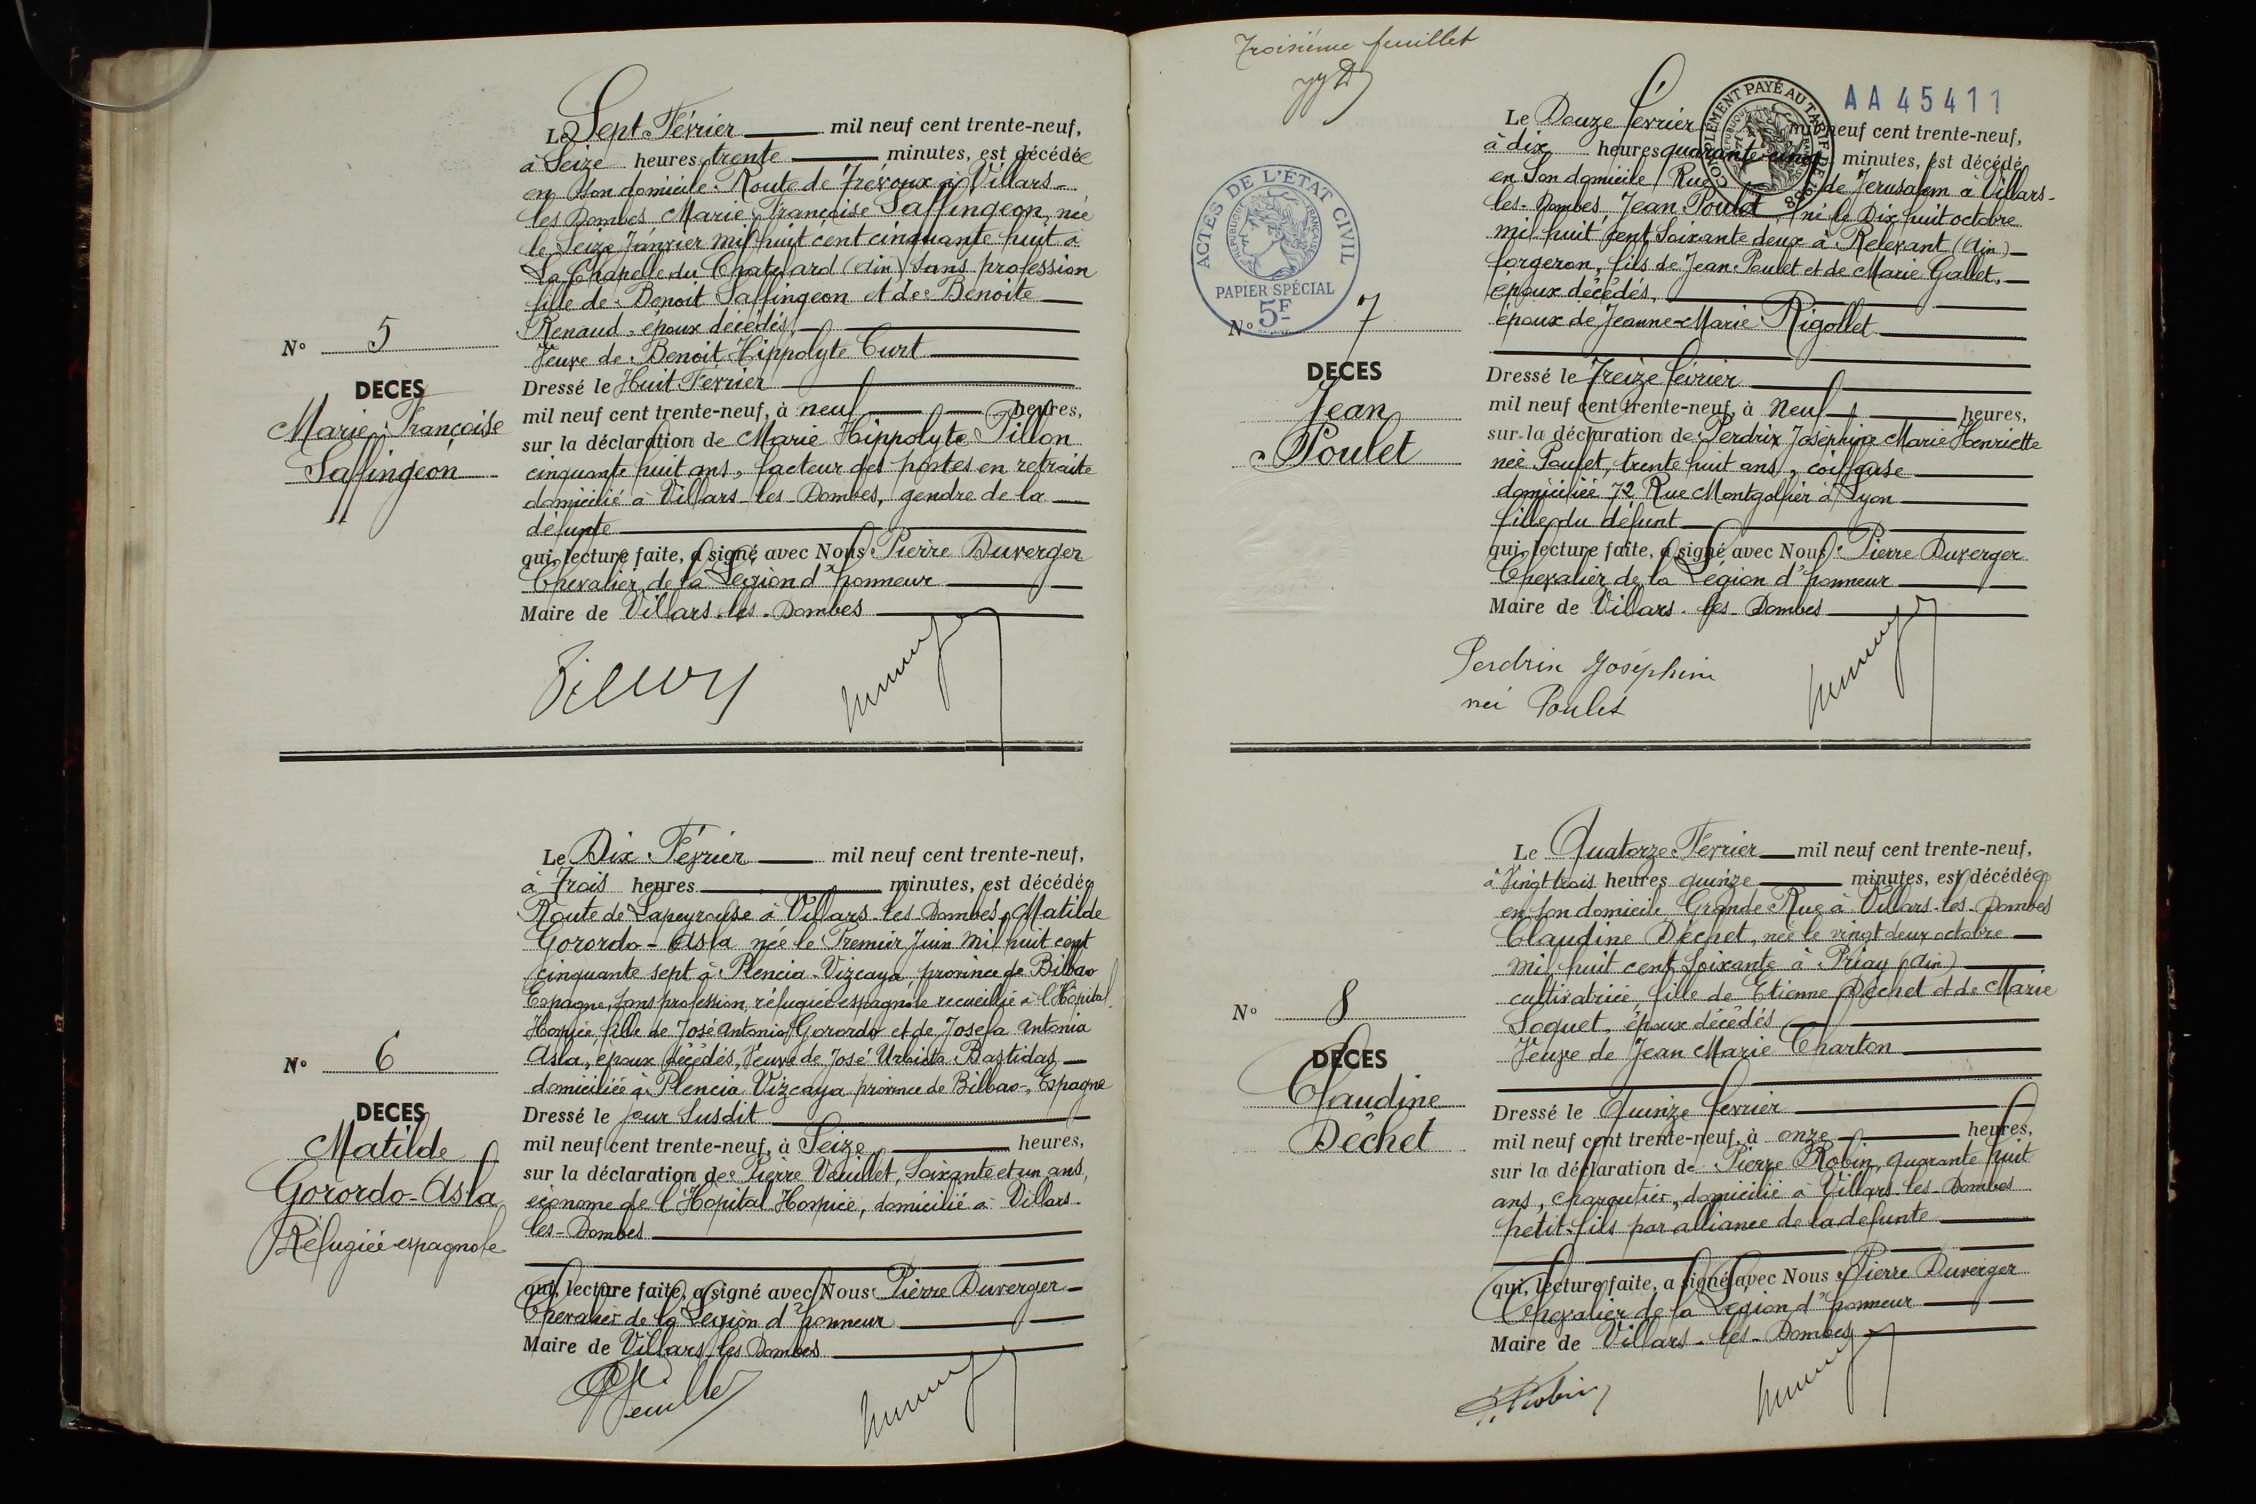 Le Sept Février mil neuf cent trente-neuf,
à Seize heures trente minutes, est décédée
en son domicile Route de Trévoux à Villars-
les Dombes Marie Françoise Saffingeon, née
le Seize Janvier mil huit cent cinquante huit à
La Chapelle du Chatelard (Ain) Sans profession
fille de Benoit Saffingeon et de Benoite
Renaud, époux décédés,
Veuve de Benoit Hippolyte Curt
N° 5
DECES
Marie Françoise
Saffingeon
Dressé le Huit Février
mil neuf cent trente-neuf, à neuf heures,
sur la déclaration de Marie Hippolyte Pillon
cinquante huit ans, facteur des postes en retraite
domicilié à Villars-les-Dombes, gendre de la
défunte
qui, lecture faite, a signé avec Nous Pierre Duverger
Chevalier de la Légion d'honneur
Maire de Villars-les-Dombes
Le Dix Février mil neuf cent trente-neuf,
à Trois heures minutes, est décédée
Route de Lapeyrouse à Villars-les Dombes, Matilde
Gorordo-Asla née le Premier Juin mil huit cent
cinquante sept à Plencia-Vizcaya, province de Bilbao
Espagne, Sans profession, réfugiée espagnole recueillie à l'Hôpital
Hospice, fille de José Antonio Gorordo et de Josefa Antonia
Asla, époux décédés, Veuve de José Bastidas
domiciliée à Plencia Vizcaya province de Bilbao-Espagne
N° 6
DECES
Matilde
Gorordo-Asla
Réfugiée espagnole
Dressé le jour Susdit
mil neuf cent trente-neuf, à Seize heures,
sur la déclaration de Pierre Veuillet, Soixante et un ans,
econome de l'Hôpital Hospice, domicilié à Villars-
les-Dombes
qui, lecture faite, a signé avec Nous Pierre Duverger
Chevalier de la Légion d'honneur
Maire de Villars-les Dombes
Veuillet
Troisième feuillet
AA 45411
COMPLEMENT PAYÉ AU TARIF DE 1938
ACTES DE L'ETAT CIVIL
REPUBLIQUE FRANÇAISE
PAPIER SPÉCIAL
5F
Le Douze février mil neuf cent trente-neuf,
à dix heures quarante-cinq minutes, est décédé
en Son domicile Rue de Jerusalem à Villars-
les-Dombes, Jean Poulet, né le Dix huit octobre
mil huit cent Soixante deux à Relevant (Ain)
forgeron, fils de Jean Poulet et de Marie Gallet,
époux décédés,
époux de Jeanne-Marie Rigollet
N° 7
DECES
Jean
Poulet
Dressé le Treize février
mil neuf cent trente-neuf, à Neuf heures,
sur la déclaration de Perdrix Joséphine Marie Henriette
née Poulet, trente huit ans, coiffeuse
domiciliée 72 Rue Montgolfier à Lyon
fille du défunt
qui, lecture faite, a signé avec Nous Pierre Duverger
Chevalier de la Légion d'honneur
Maire de Villars-les-Dombes
Perdrix Joséphine
née Poulet
Le Quatorze Février mil neuf cent trente-neuf,
à Vingt trois heures quinze minutes, est décédée
en son domicile Grande Rue à Villars-les-Dombes
Claudine Déchet, née le vingt deux octobre
mil huit cent Soixante à Priay (Ain)
cultivatrice, fille de Etienne Déchet et de Marie
Loquet, époux décédés
Veuve de Jean Marie Charton
N° 8
DECES
Claudine
Déchet
Dressé le Quinze février
mil neuf cent trente-neuf, à onze heures,
sur la déclaration de Pierre Robin, quarante huit
ans, charcutier, domicilié à Villars-les-Dombes
petit-fils par alliance de la defunte
qui, lecture faite, a signé avec Nous Pierre Duverger
Chevalier de la Légion d'honneur
Maire de Villars-les-Dombes
P. Robin